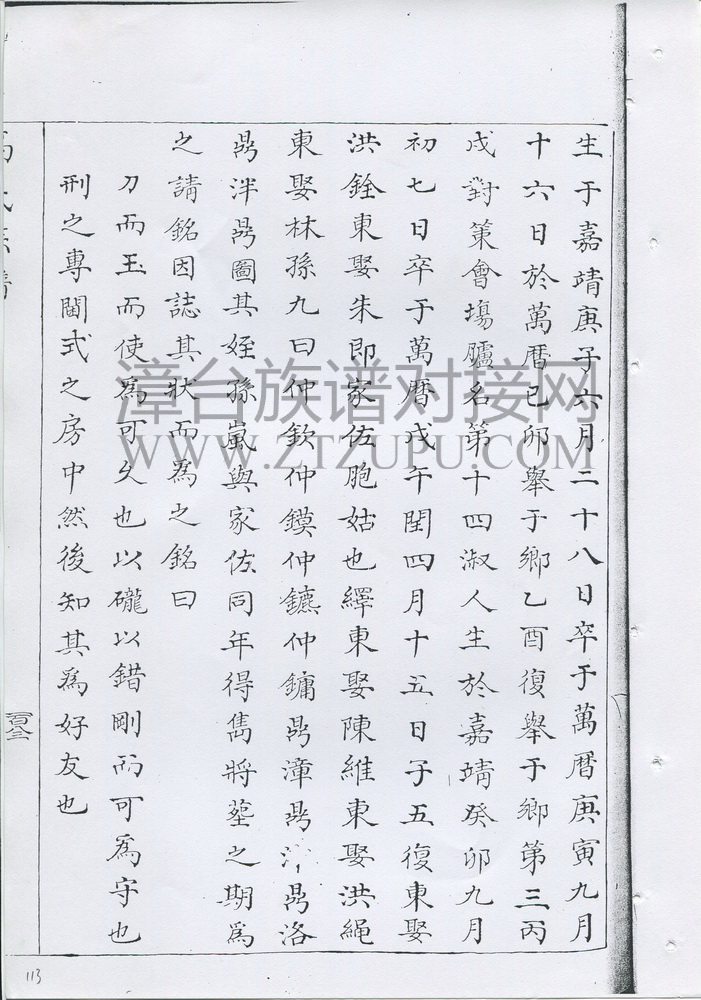 生于嘉靖庚子六月二十八日卒于萬曆庚寅九月
十六日於萬曆己卯舉于鄉乙酉復舉于鄉第三丙
戌對策會場臚名第十四淑人生於嘉靖癸卯九月
初七日卒于萬曆戊午閏四月十五日子五復東娶
洪銓東娶朱即家佐胞姑也繹東娶陳維東娶洪繩
東娶林孫九曰仲欽仲鏌仲鑣仲鏞鼎漳鼎 鼎洛
鼎泮鼎圖其姪孫嵐與家佐同年得雋將塟之期為
之請銘因誌其狀而為之銘曰
刀而玉而使為可久也以礲以錯剛而可為守也
刑之專閫式之房中然後知其為好友也
氏族譜
113
漳台族谱对接网
WWW.ZTZUPU.COM